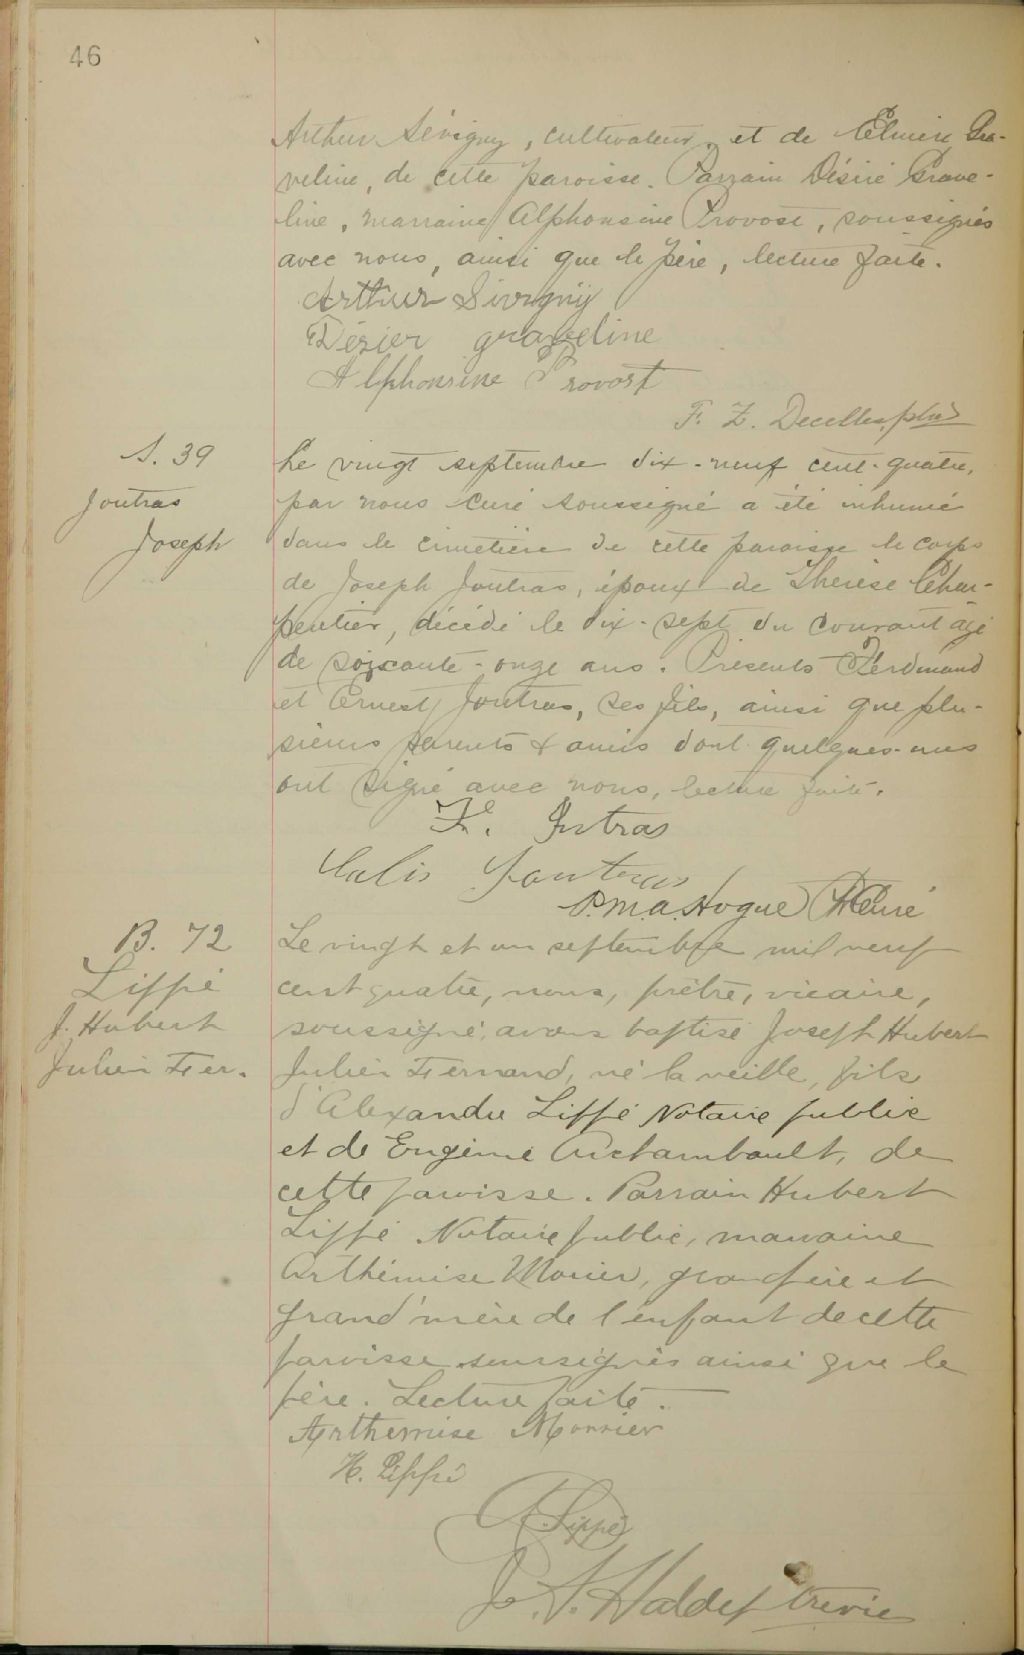 46
Arthur Sévigny, cultivateur, et de Elmire Gra-
veline, de cette paroisse. Parrain Désiré Grave-
line, marraine Alphonsine Provost, soussignés
avec nous, ainsi que le père, lecture faite.
Arthur Sivigny
Dézier graveline
Alphonsine Provost
F. Z. Decelles, ptre
S. 39
Joutras
Joseph
Le vingt septembre dix-neuf cent-quatre,
par nous curé soussigné a été inhumé
dans le cimetière de cette paroisse le corps
de Joseph Joutras, époux de Thérèse Char-
pentier, décédé le dix-sept du courant âgé
de soixante-onze ans. Présents Ferdinand
et Ernest Joutras, ses fils, ainsi que plu-
sieurs parents & amis dont quelques-uns
ont signé avec nous, lecture faite.
F. Jutras
Calis Joutras
P.M.A. Hogue Ptre Curé
B. 72
Lippé
J. Hubert
Julien Fer.
Le vingt et un septembre mil neuf
cent quatre, nous, prêtre, vicaire,
soussigné, avons baptisé Joseph Hubert
Julien Fernand, né la veille, fils
d'Alexandre Lippé Notaire public
et de Eugénie Archambault, de
cette paroisse. Parrain Hubert
Lippé Notaire public, marraine
Arthémise Morier, grandpère et
grand'mère de l'enfant de cette
paroisse soussignés ainsi que le
père. Lecture faite.
Arthemise Morrier
H. Lippé
A. Lippé
J. A.